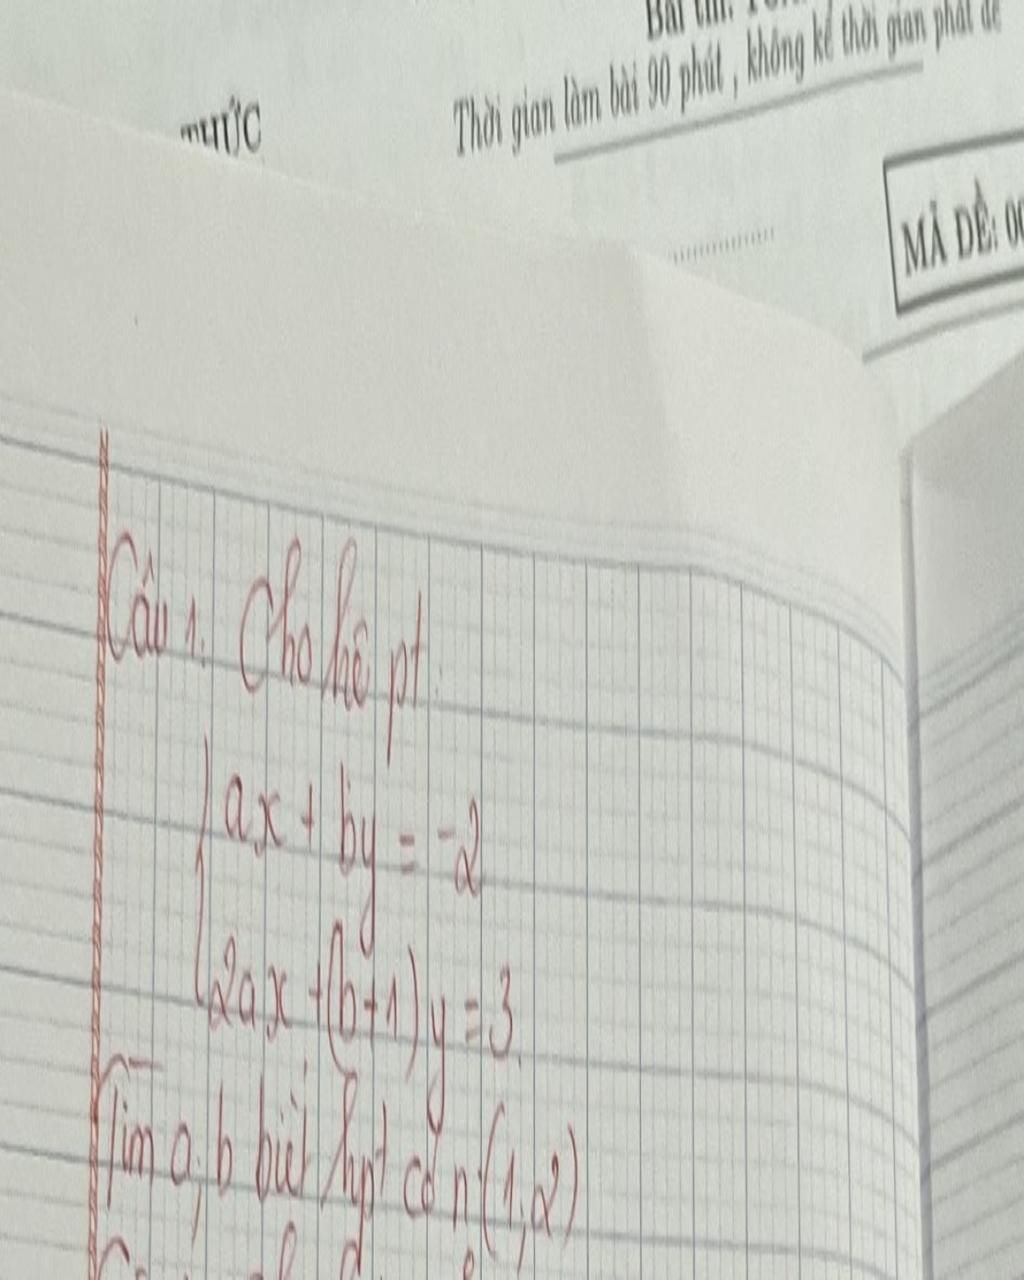 Bài thi:
Thời gian làm bài 90 phút , không kể thời gian phát đề
THỨC
MÃ ĐỀ: 00
Câu 1. Cho hệ pt
ax + by = -2
2ax + (b+1)y = 3.
Tìm a, b biết hpt có n (1;2)